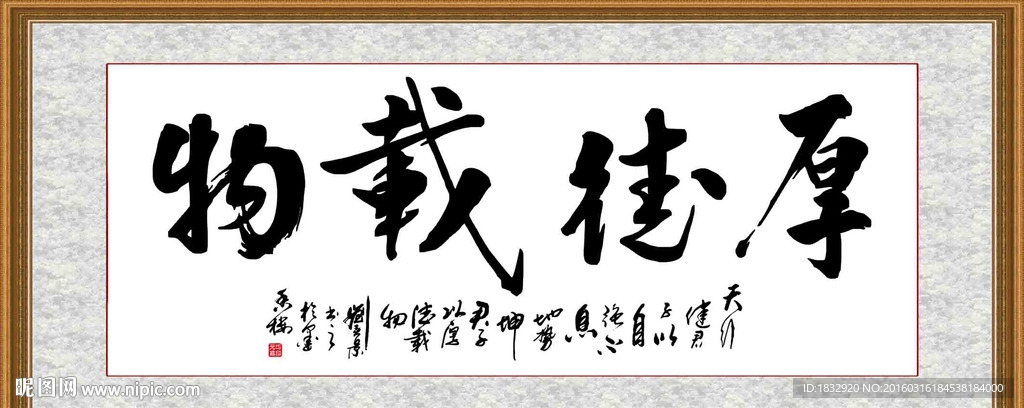 厚德載物
天行
健君
子以
自
強不
息
地勢
坤
君子
以厚
德載
物
劉景
書之
於墨
香樓
昵图网 www.nipic.com
ID:1832920 NO:20160316184538184000